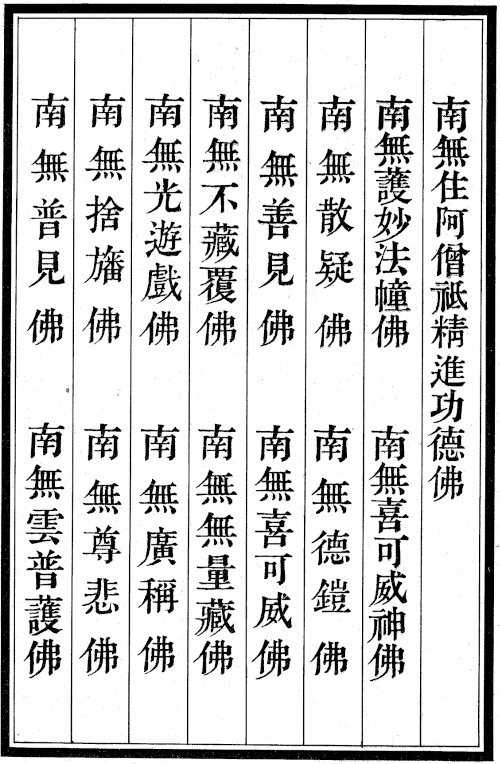 南無住阿僧祇精進功德佛
南無護妙法幢佛　南無喜可威神佛
南無散疑佛　南無德鎧佛
南無善見佛　南無喜可威佛
南無不藏覆佛　南無無量藏佛
南無光遊戲佛　南無廣稱佛
南無捨旛佛　南無尊悲佛
南無普見佛　南無雲普護佛